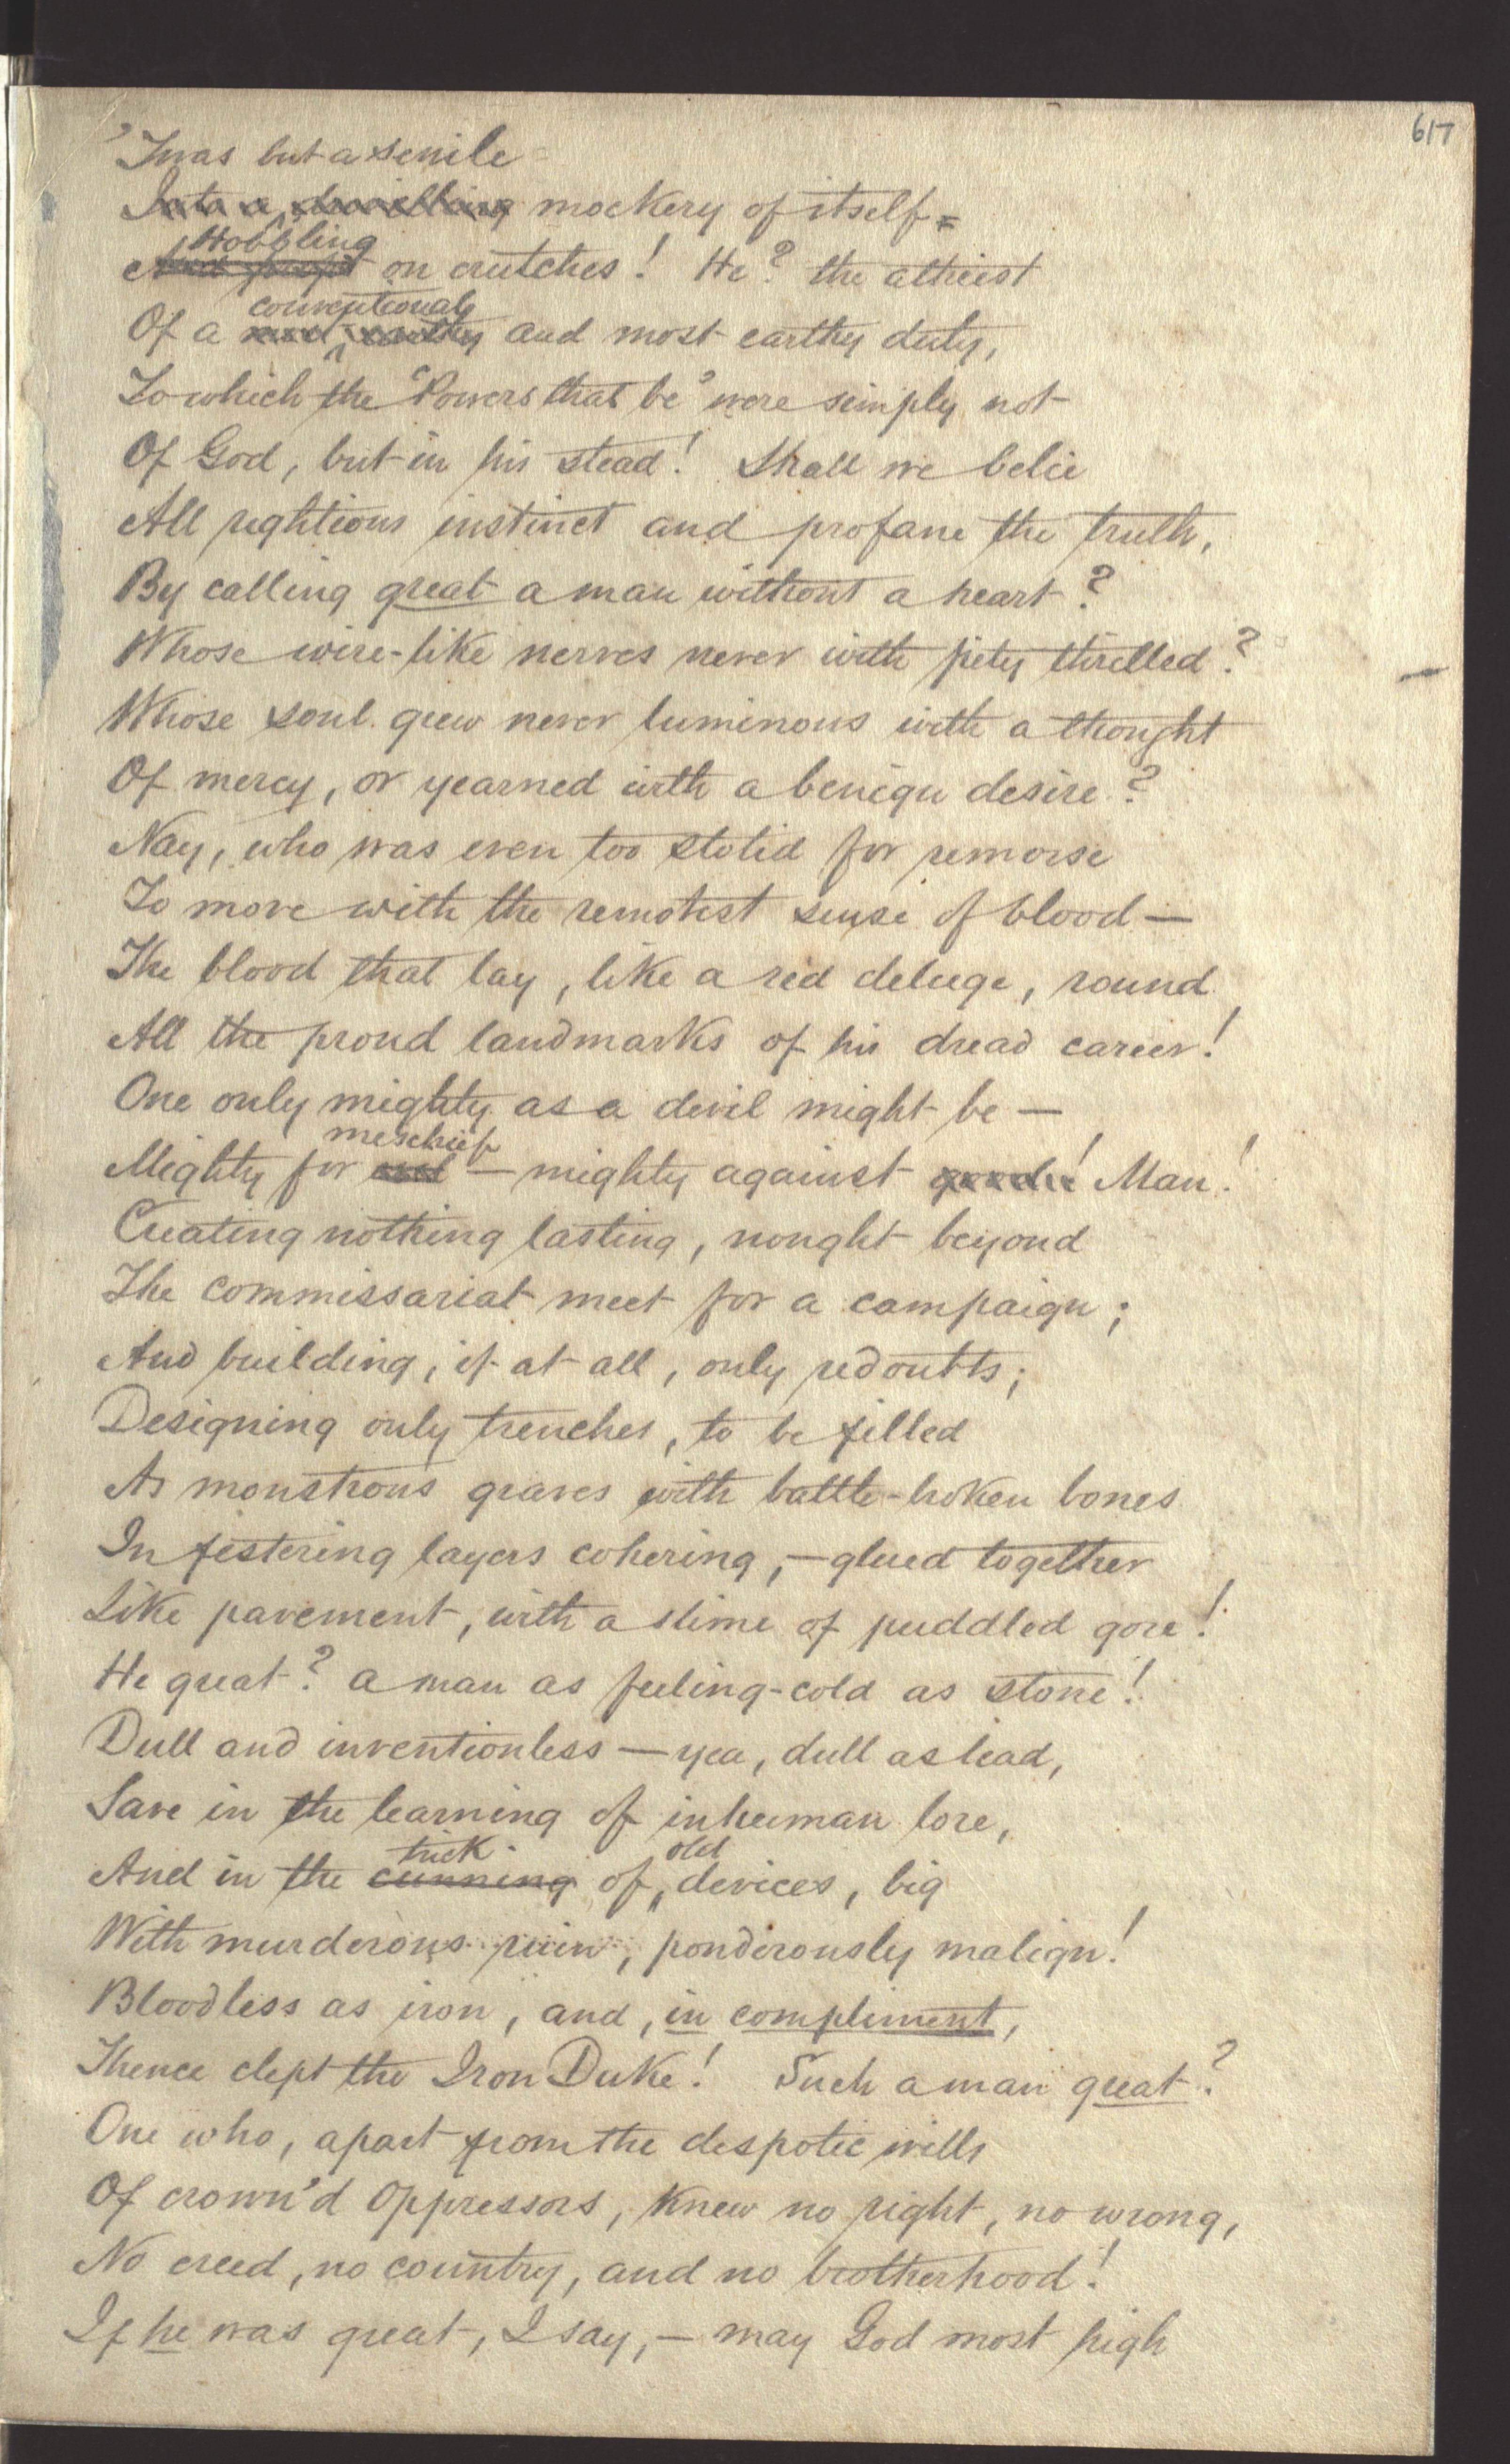 617
'Twas but a senile
Into a drivelling mockery of itself =
Hobbling
And prop'd on crutches! He? the atheist
conventional
Of a and most earthy duty,
To which the "Powers that be" were simply not
Of God, but in his stead! Shall we belie
All rightious instinct and profane the truth,
By calling great a man without a heart?
Whose wire-like nerves never with piety thrilled?
Whose soul grew never luminous with a thought
Of mercy, or yearned with a benign desire?
Nay, who was even too stolid for remorse
To move with the remotest sense of blood —
The blood that lay, like a red deluge, round
All the proud landmarks of his dread career!
One only mighty as a devil might be —
meschief
Mighty for evil — mighty against good! Man!
Creating nothing lasting, nought beyond
The commissariat meet for a campaign;
And building, if at all, only redoubts;
Designing only trenches, to be filled
As monstrous graves with battle-broken bones
In festering layers cohering, — glued together
Like pavement, with a slime of puddled gore!
He great? a man as feeling-cold as stone!
Dull and inventionless — yea, dull as lead,
Save in the learning of inhuman lore,
trick old
And in the cunning of devices, big
With murderous ruin, ponderously malign!
Bloodless as iron, and, in compliment,
Thence clept the Iron Duke! Such a man great?
One who, apart from the despotic wills
Of crown'd Oppressors, knew no right, no wrong,
No creed, no country, and no brotherhood!
If he was great, I say, — may God most high